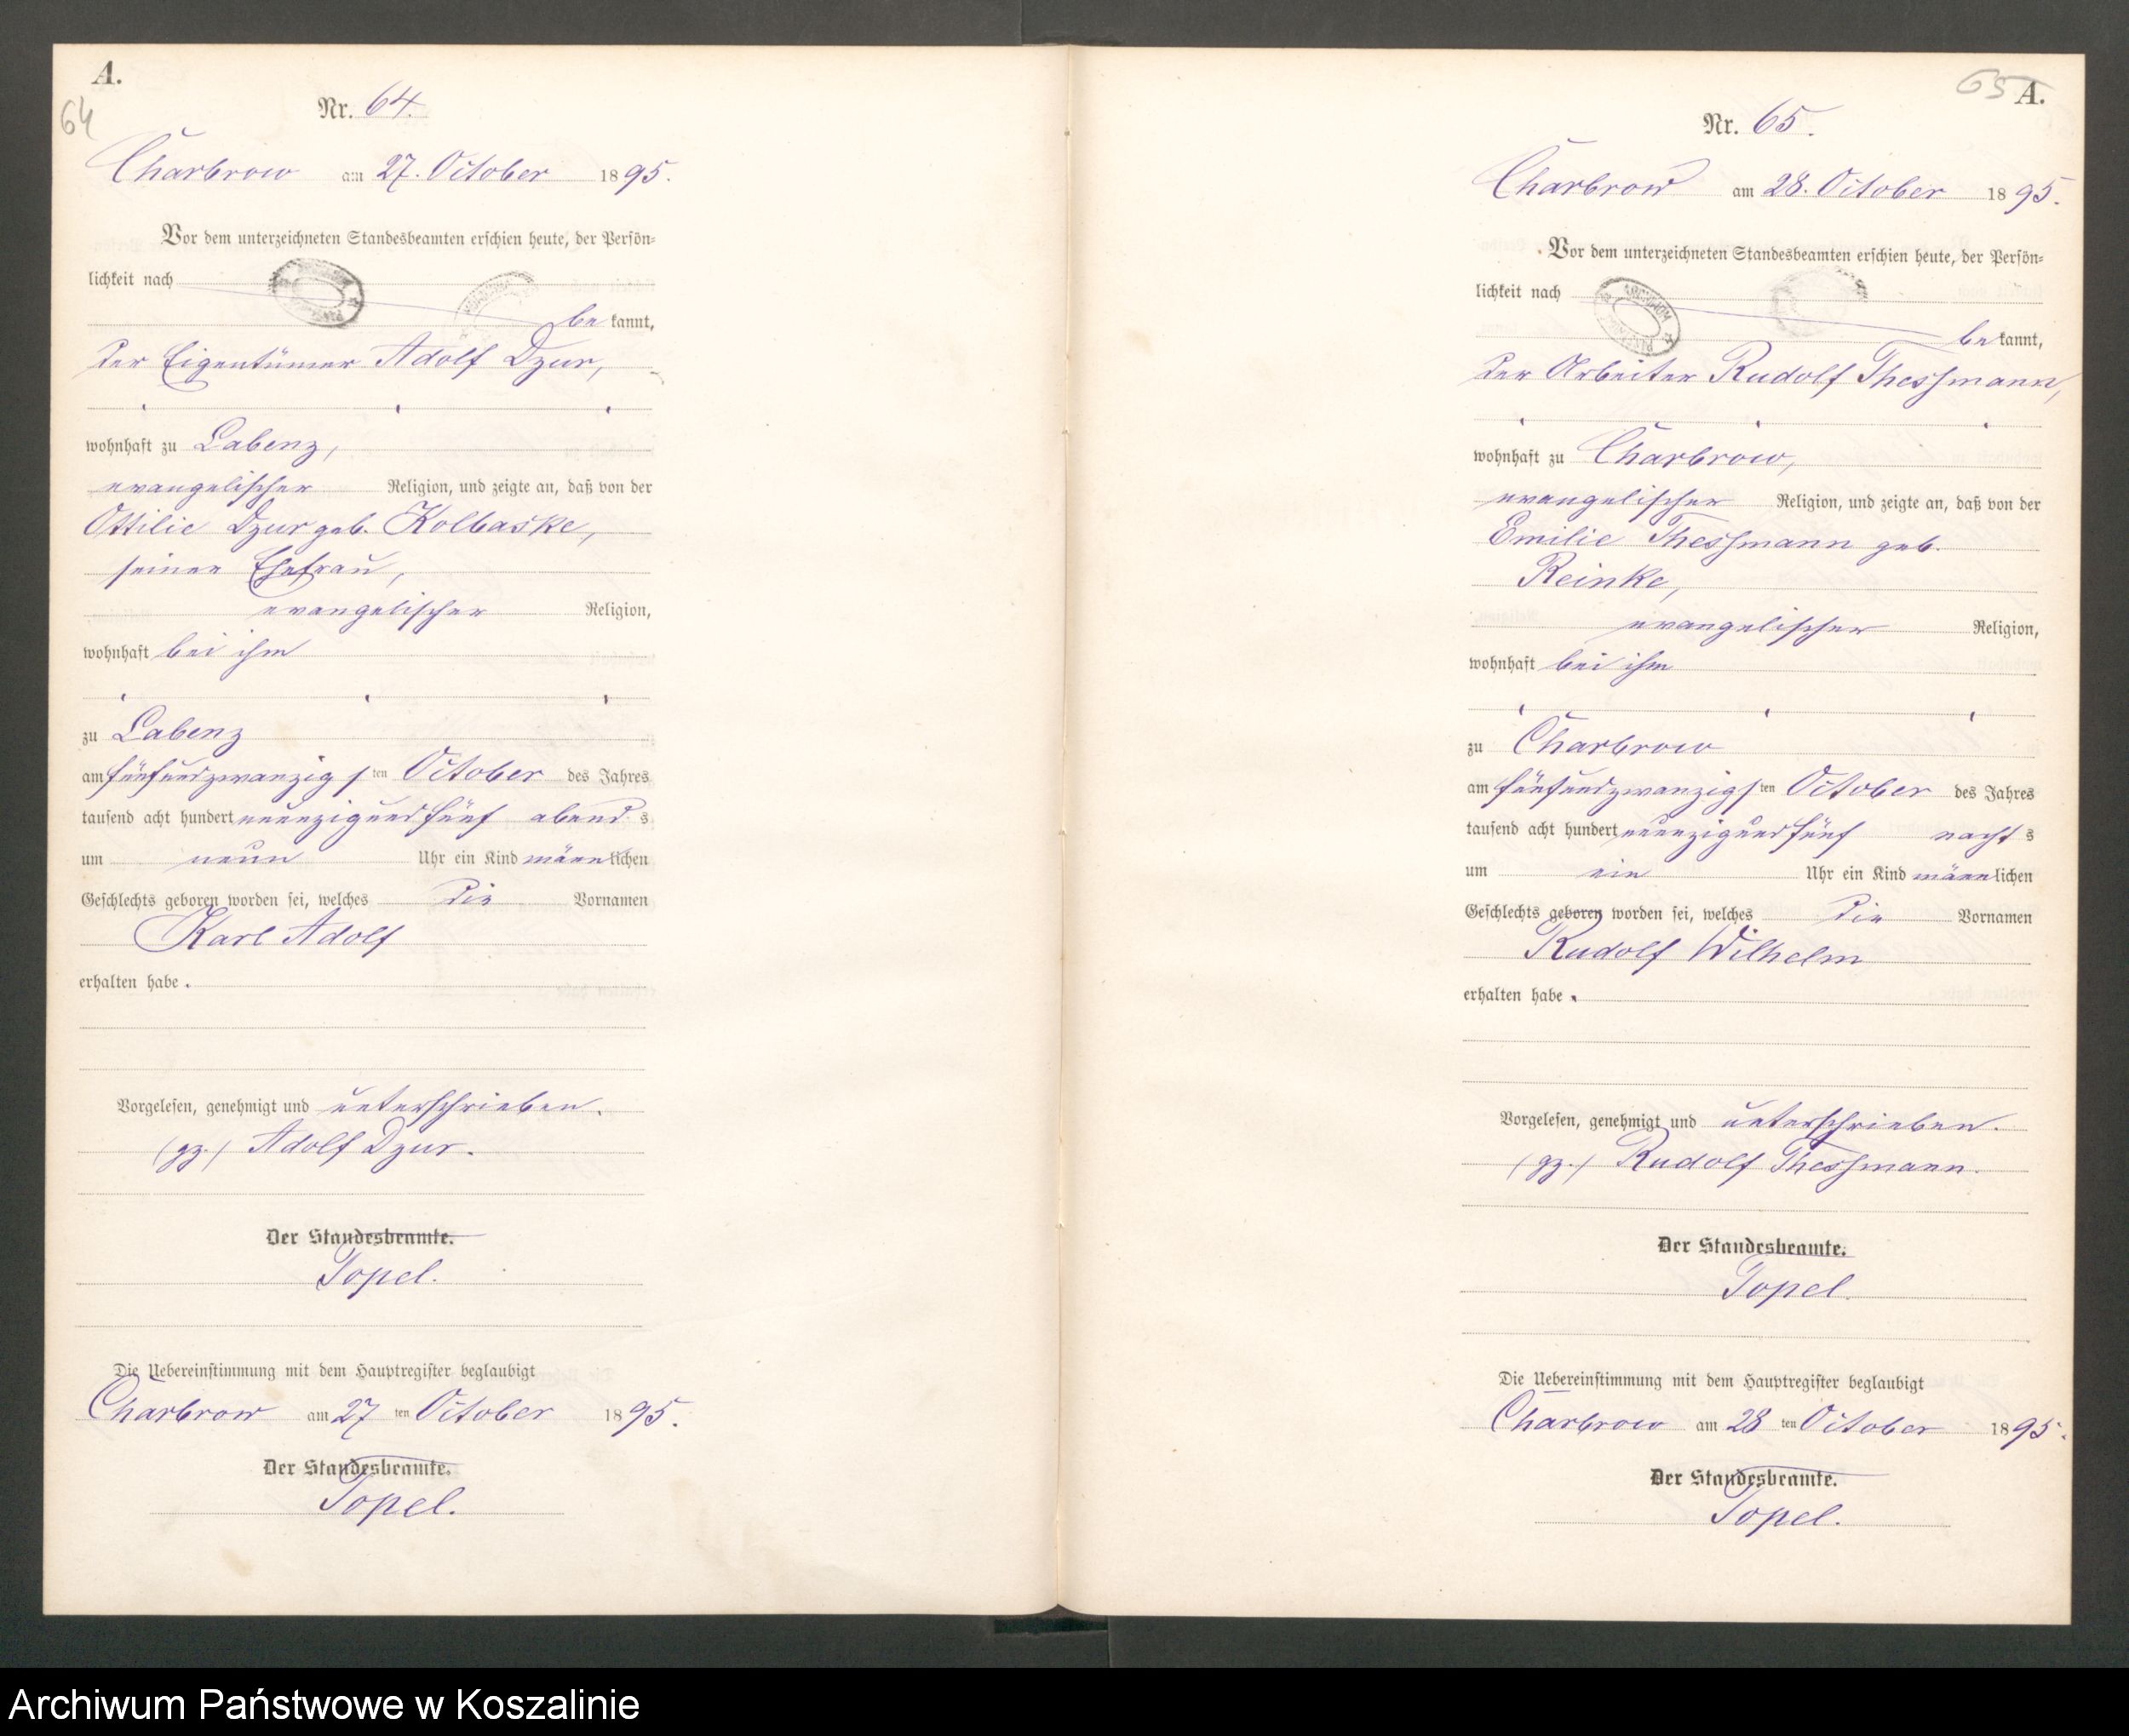 A.
64
Nr. 64.
Charbrow am 27. October 1895.
Vor dem unterzeichneten Standesbeamten erschien heute, der Persön-
lichkeit nach
be kannt,
der Eigentümer Adolf Dzur,
wohnhaft zu Labenz,
evangelischer Religion, und zeigte an, daß von der
Ottilie Dzur geb. Kolbaske,
seiner Ehefrau,
evangelischer Religion,
wohnhaft bei ihm
zu Labenz
am fünfundzwanzigsten October des Jahres
tausend acht hundert neunzigundfünf abends
um neun Uhr ein Kind männlichen
Geschlechts geboren worden sei, welches die Vornamen
Karl Adolf
erhalten habe.
Vorgelesen, genehmigt und unterschrieben.
(gz.) Adolf Dzur.
Der Standesbeamte.
Topel.
Die Uebereinstimmung mit dem Hauptregister beglaubigt
Charbrow am 27 ten October 1895.
Der Standesbeamte.
Topel.
65 A.
Nr. 65.
Charbrow am 28. October 1895.
Vor dem unterzeichneten Standesbeamten erschien heute, der Persön-
lichkeit nach
ARCHIWUM
be kannt,
der Arbeiter Rudolf Thessmann,
wohnhaft zu Charbrow,
evangelischer Religion, und zeigte an, daß von der
Emilie Thessmann geb.
Reinke,
evangelischer Religion,
wohnhaft bei ihm
zu Charbrow
am fünfundzwanzigsten October des Jahres
tausend acht hundert neunzigundfünf nachts
um ein Uhr ein Kind männlichen
Geschlechts geboren worden sei, welches die Vornamen
Rudolf Wilhelm
erhalten habe.
Vorgelesen, genehmigt und unterschrieben.
(gz.) Rudolf Thessmann.
Der Standesbeamte.
Topel.
Die Uebereinstimmung mit dem Hauptregister beglaubigt
Charbrow am 28 ten October 1895.
Der Standesbeamte.
Topel.
Archiwum Państwowe w Koszalinie